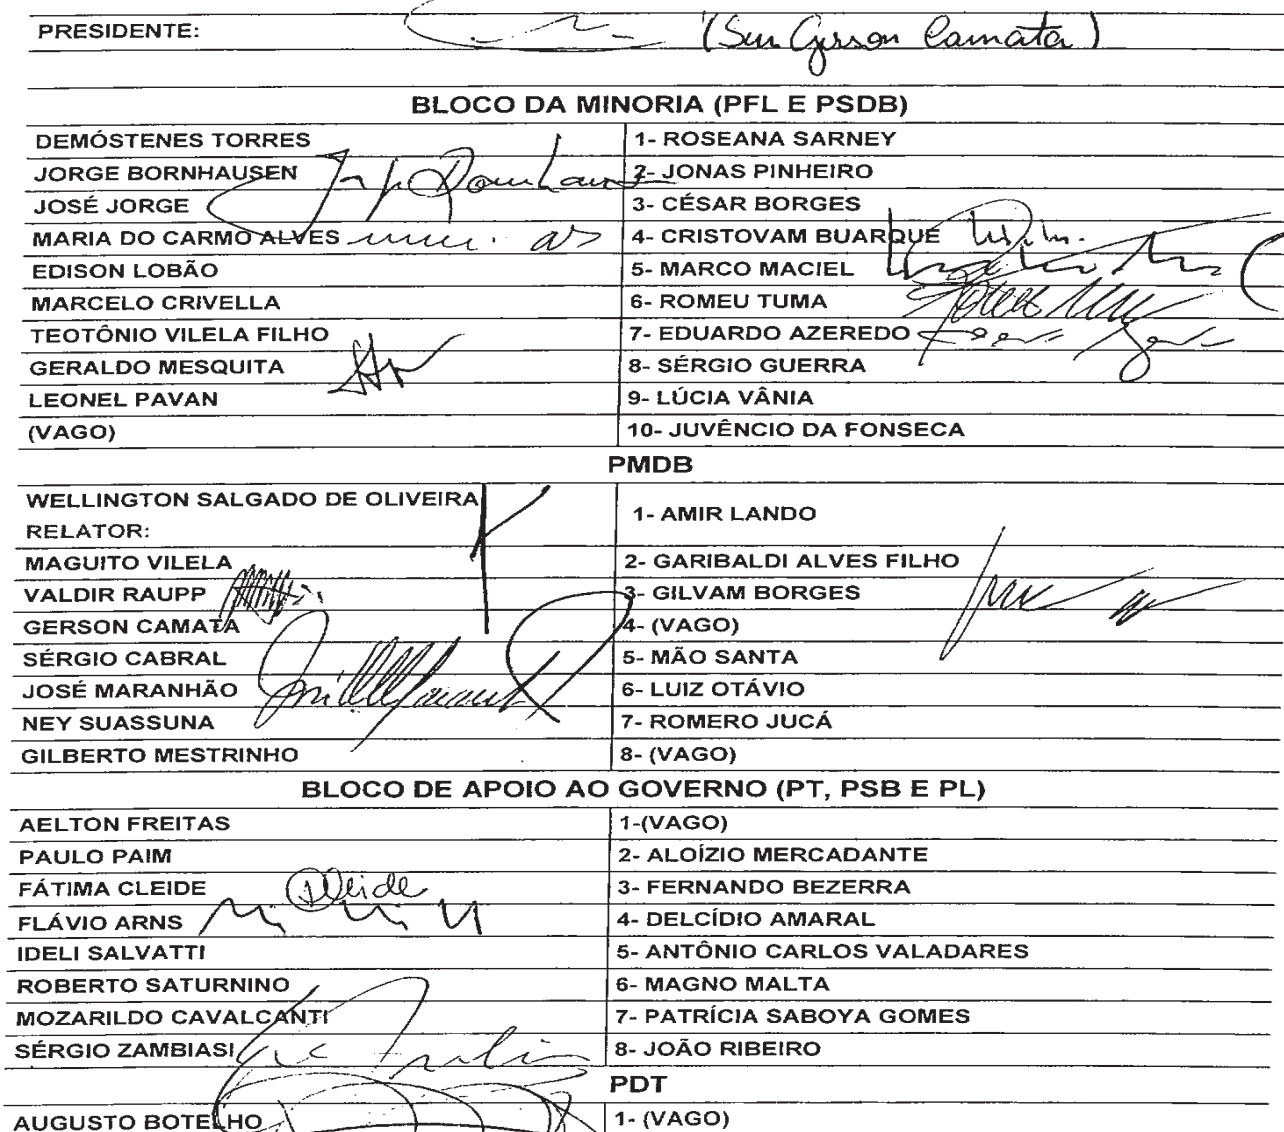 PRESIDENTE: (Sen Gerson Camata)
BLOCO DA MINORIA (PFL E PSDB)
DEMÓSTENES TORRES 1- ROSEANA SARNEY
JORGE BORNHAUSEN 2- JONAS PINHEIRO
JOSÉ JORGE 3- CÉSAR BORGES
MARIA DO CARMO ALVES 4- CRISTOVAM BUARQUE
EDISON LOBÃO 5- MARCO MACIEL
MARCELO CRIVELLA 6- ROMEU TUMA
TEOTÔNIO VILELA FILHO 7- EDUARDO AZEREDO
GERALDO MESQUITA 8- SÉRGIO GUERRA
LEONEL PAVAN 9- LÚCIA VÂNIA
(VAGO) 10- JUVÊNCIO DA FONSECA
PMDB
WELLINGTON SALGADO DE OLIVEIRA
RELATOR: 1- AMIR LANDO
MAGUITO VILELA 2- GARIBALDI ALVES FILHO
VALDIR RAUPP 3- GILVAM BORGES
GERSON CAMATA 4- (VAGO)
SÉRGIO CABRAL 5- MÃO SANTA
JOSÉ MARANHÃO 6- LUIZ OTÁVIO
NEY SUASSUNA 7- ROMERO JUCÁ
GILBERTO MESTRINHO 8- (VAGO)
BLOCO DE APOIO AO GOVERNO (PT, PSB E PL)
AELTON FREITAS 1-(VAGO)
PAULO PAIM 2- ALOÍZIO MERCADANTE
FÁTIMA CLEIDE Cleide 3- FERNANDO BEZERRA
FLÁVIO ARNS 4- DELCÍDIO AMARAL
IDELI SALVATTI 5- ANTÔNIO CARLOS VALADARES
ROBERTO SATURNINO 6- MAGNO MALTA
MOZARILDO CAVALCANTI 7- PATRÍCIA SABOYA GOMES
SÉRGIO ZAMBIASI 8- JOÃO RIBEIRO
PDT
AUGUSTO BOTELHO 1- (VAGO)